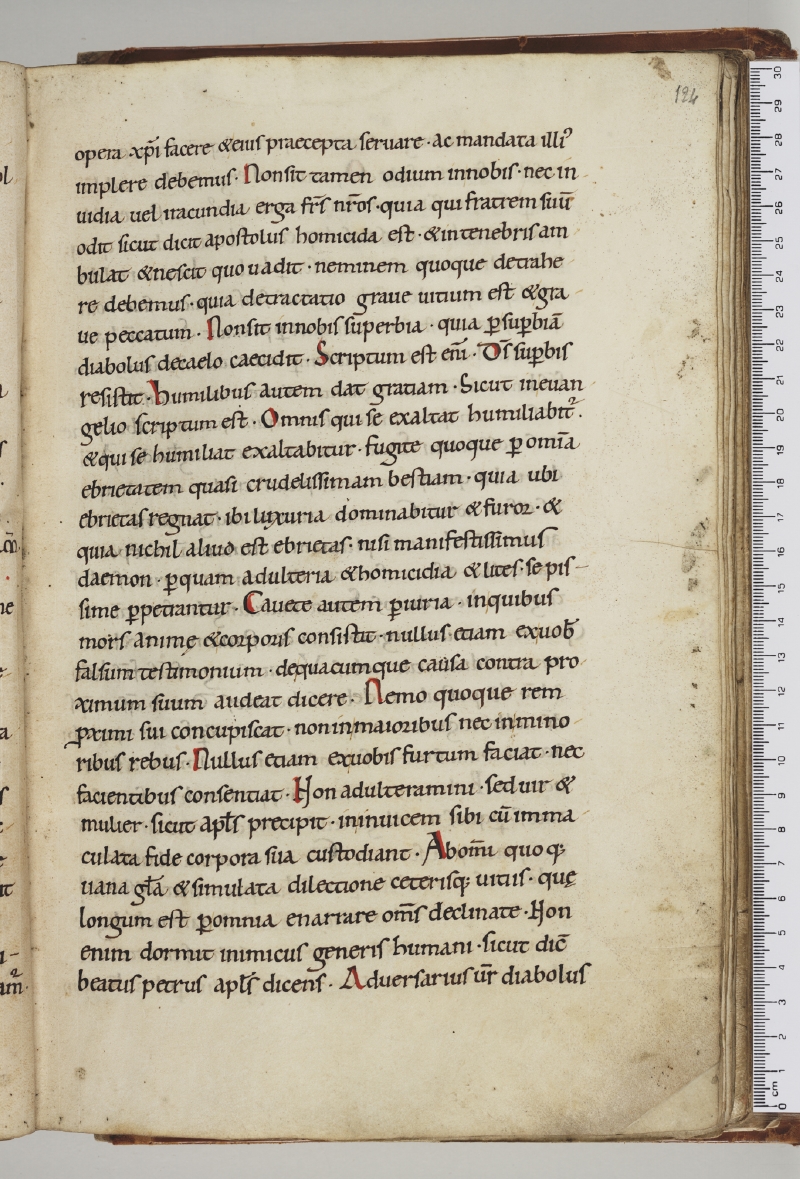 124
opera xp̄i facere &eius praecepta seruare · ac mandata illiꝰ
implere debemus · Nonsit tamen odium innobis · nec in
uidia uel iracundia erga fr̄s nr̄os · quia qui fratrem suū
odit sicut dicit apostolus homicida est · &intenebris am
bulat &nescit quo uadit · neminem quoque detrahe
re debemus · quia detractatio graue uitium est &gra
ue peccatum · Nonsit innobis superbia · quia ꝑsuꝑbiā
diabolus decaelo caecidit · Scriptum est eni̅ · Ds̄ suꝑbis
resistit · humilibus autem dat gratiam · Sicut ineuan
gelio scriptum est · Omnis qui se exaltat humiliabit᷑ .
&qui se humiliat exaltabitur · fugite quoque ꝑ omīa
ebrietatem quasi crudelissimam bestiam · quia ubi
ebrietas regnat · ibi luxuria dominabitur &furor · &
quia nichil aliud est ebrietas · nisi manifestissimus
daemon · ꝑquam adulteria &homicidia &lites · sepis
sime ꝑpetrantur · Cauete autem ꝑiuria · inquibus
mors animę &corporis consistit · nullus etiam exuob̄
falsum testimonium · dequacumque causa contra pro
ximum suum audeat dicere · Nemo quoque rem
ꝓximi sui concupiscat · noninmaioribus nec inmino
ribus rebus · Nullus etiam exuobis furtum faciat · nec
facientibus consentiat · Non adulteramini · sed uir &
mulier · sicut apl̄s precipit · ininuicem sibi cū imma
culata fide corpora sua custodiant · Abom̄i quoq;
uana gl̄a &simulata dilectione ceterisq; uitiis · quę
longum est ꝑomnia enarrare om̄s declinate · Non
enim dormit inimicus generis humani · sicut dic̄
beatus petrus apl̄s dicens̄ · Aduersarius ur̄ diabolus